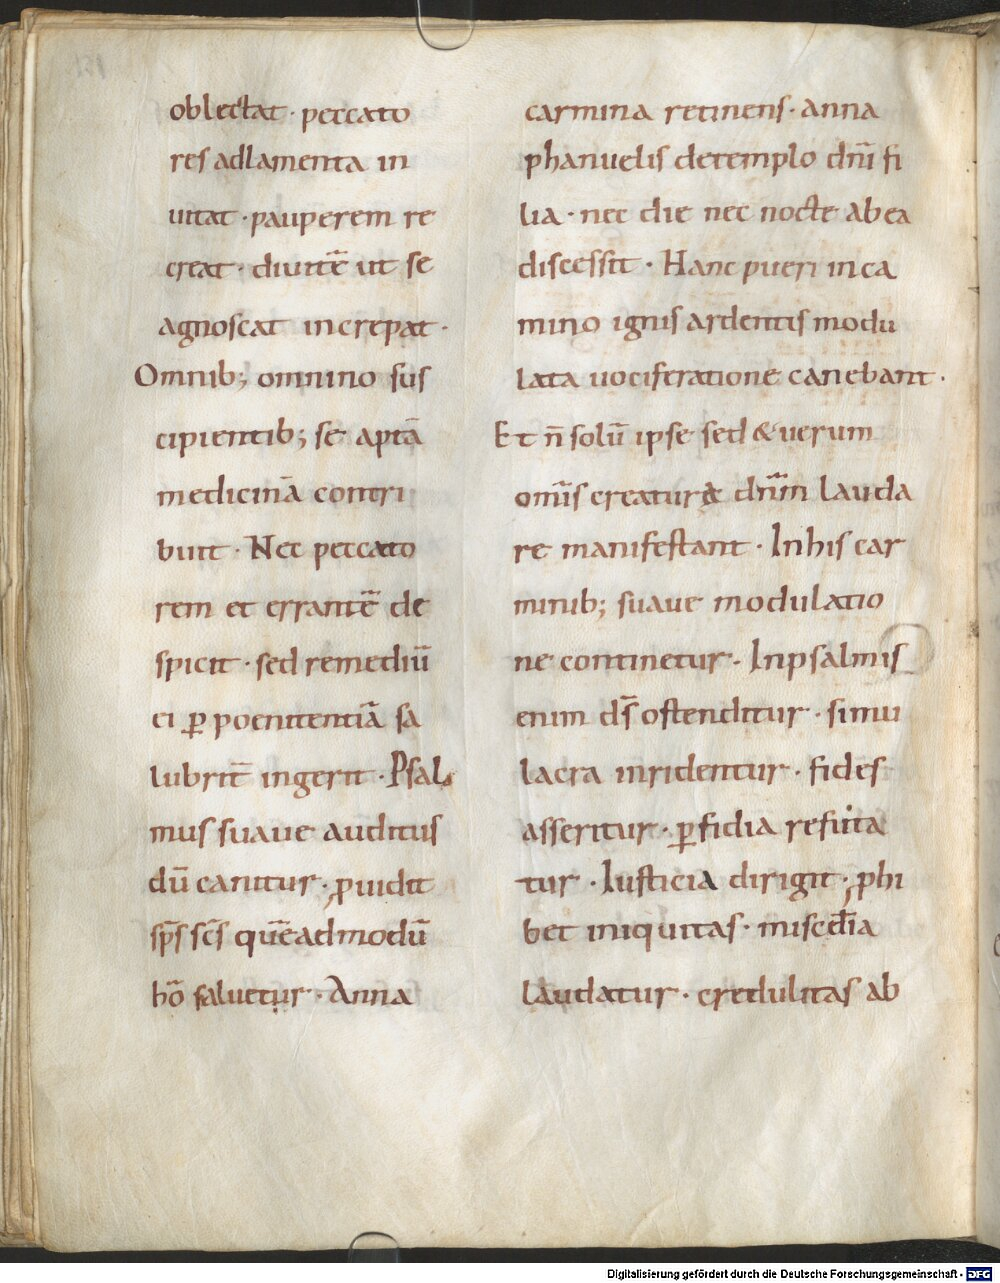 oblectat · peccato
res adlamenta in
uitat · pauperem re
creat · diuitē ut se
agnoscat increpat ·
Omnib; omnino sus
cipientib; se aptā
medicinā contri
buit · Nec peccato
rem et errantē de
spicit · sed remediū
ei ꝑ poenitentiā sa
lubrit̄ ingerit · Psal
mus suaue auditus
dū canitur · ꝓuidit
sp̄s sc̄s quēadmodū
hō saluetur · Anna
carmina retinens · anna
phanuelis detemplo dn̄i fi
lia · nec die nec nocte abea
discessit · Hanc pueri inca
mino ignis ardentis modu
lata uociferatione canebant ·
Et n̄ solū ipse sed & uerum
om̄is creaturę dn̄m lauda
re manifestant · In his car
minib; suaue modulatio
ne continetur · In psalmis
enim ds̄ ostenditur · simu
lacra inridentur · fides
asseritur · ꝑfidia refuta
tur · Iusticia dirigit · ꝓhi
bet iniquitas · miscd̄ia
laudatur · credulitas ab
Digitalisierung gefördert durch die Deutsche Forschungsgemeinschaft - DFG